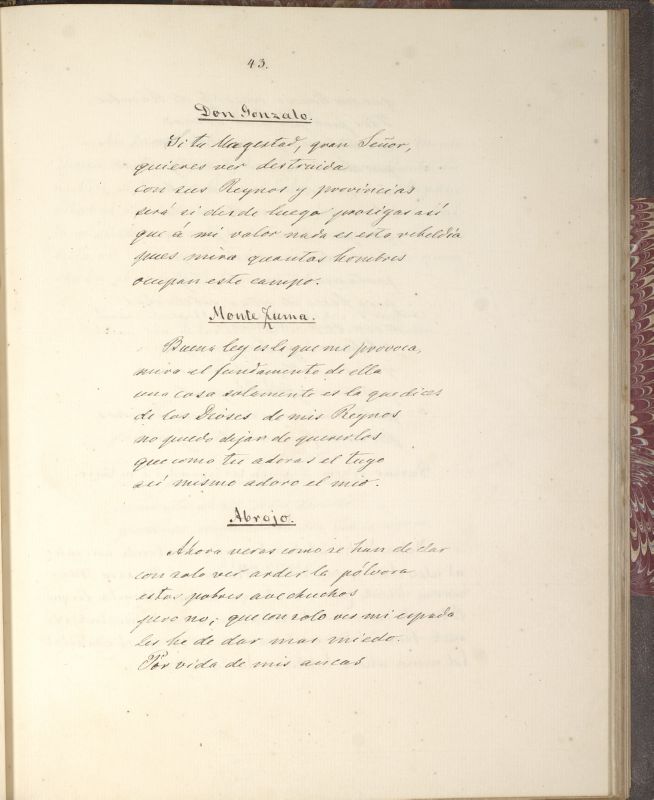 43.
Don Gonzalo.
Si tu Magestad, gran Señor,
quieres ver destruida
con sus Reynos y provincias
será si desde luego prosigas así
que á mi valor nada es esta rebeldia
pues mira quantos hombres
ocupan este campo.
Monte Zuma.
Buena ley es la que me provoca,
mira el fundamento de ella
una cosa solamente es la que dices
de los Dioses de mis Reynos
no puedo dejar de quererlos
que como tu adoras el tuyo
asi mismo adoro el mio.
Abrojo.
Ahora veras como se han de dar
con solo ver arder la pólvora
estos pobres avechuchos
pero no; que con solo ver mi espada
les he de dar mas miedo.
Por vida de mis ancas